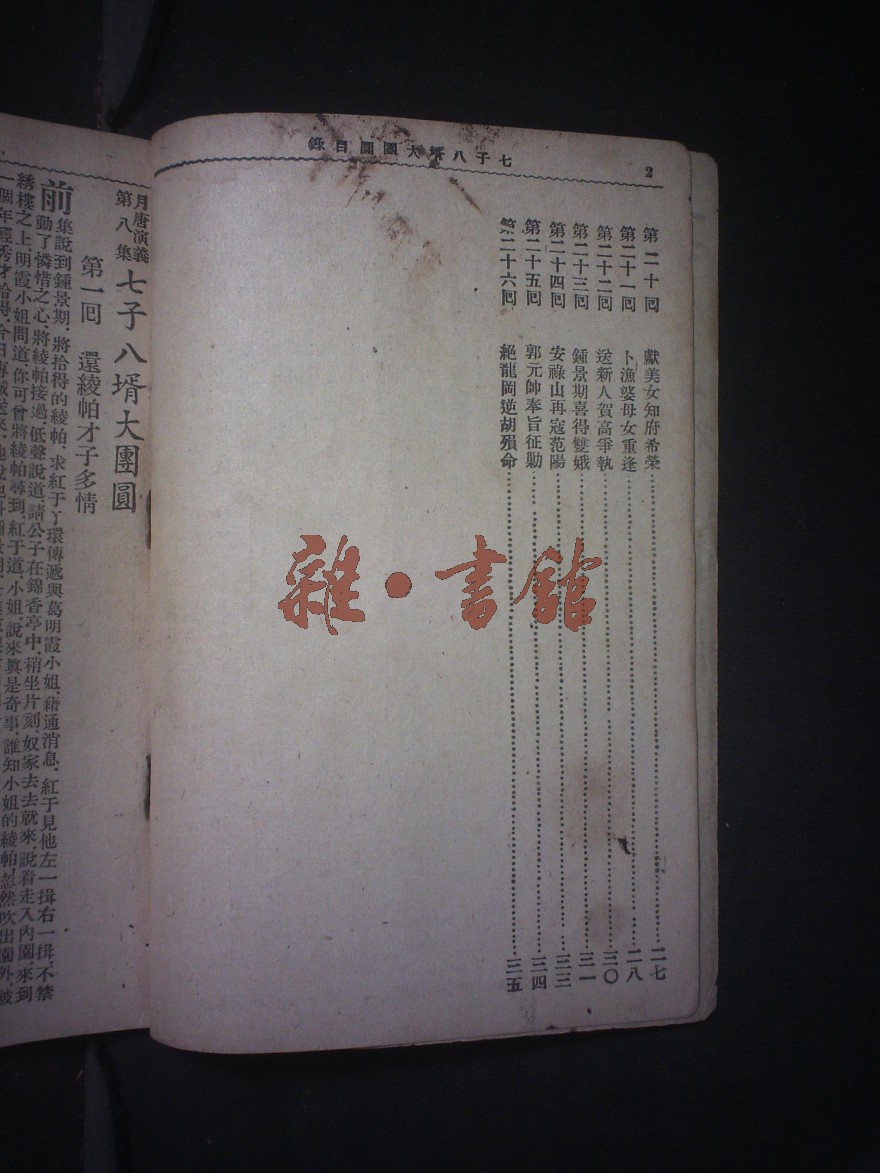 七子八壻大團圓目錄
2
第二十回 獻美女知府希榮 二七
第二十一回 卜漁婆母女重逢 二八
第二十二回 送新人賀高爭執 三〇
第二十三回 鍾景期喜得雙娥 三一
第二十四回 安祿山再寇范陽 三三
第二十五回 郭元帥奉旨征勦 三四
第二十六回 絕龍岡逆胡殞命 三五
雜·書館
月唐演義
第八集
七子八壻大團圓
第一回 還綾帕才子多情
前集說到鍾景期、將拾得的綾帕、求紅于丫環傳遞與葛明霞小姐、藉通消息、紅于見他左一揖右一揖、不禁
動了憐惜之心、將綾帕接過、低聲說道、請公子在錦香亭中、稍坐片刻、奴家去去就來、說着走入內園、來到
綉樓之上、明霞小姐問道、你可曾將綾帕尋到、紅于道、小姐、說來眞是奇事、誰知小姐的綾帕、忽然吹出園外、被
一個年輕秀才拾得、今日